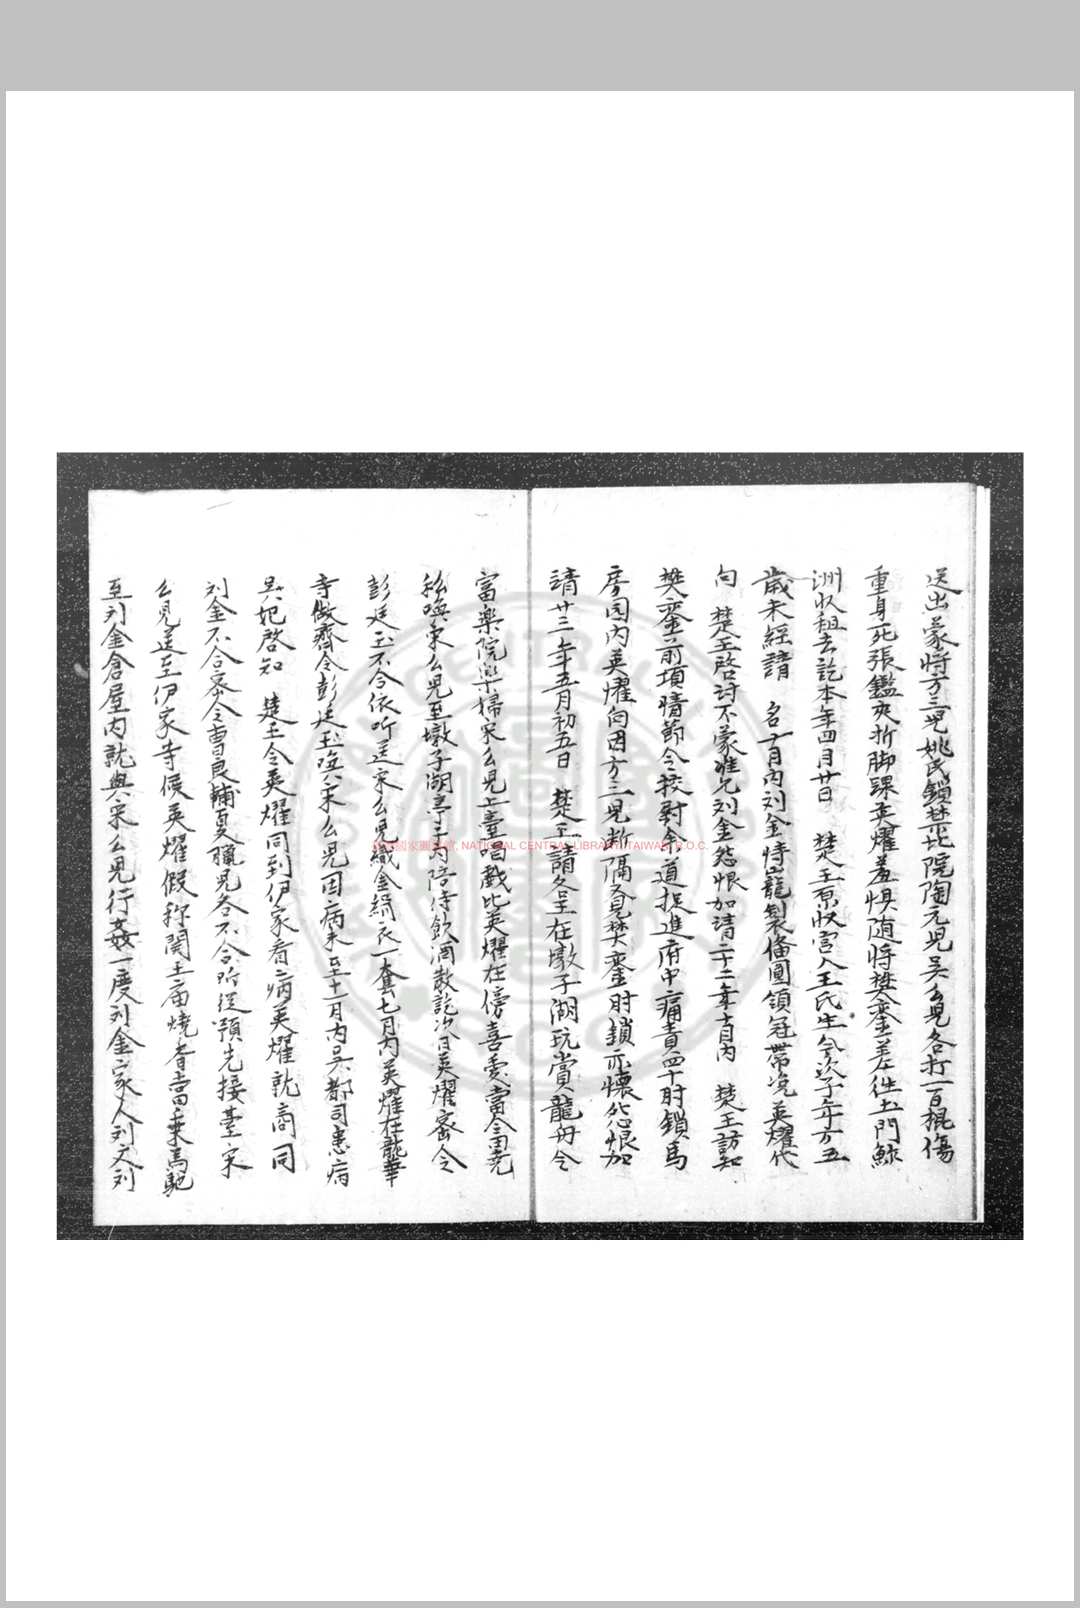 送出蒙將方三兒姚氏鎖禁玭院陶元兒吳么兒各打一百棍傷
重身死張鑑夾折脚踝英燿羞惧随將樊鑾差徃土門鯨
洲收租去訖本年四月廿日 楚王原收宮人王氏生今次子年方五
歲未經請 名十月內刘金恃寵製俻圎領冠帶凂英燿代
向 楚王啓討不蒙准允刘金怨恨加靖二十二年十月內 楚王訪知
樊鑾前項情節令校尉余道捉進府中痛責四十肘鎖馬
房园內英燿向因方三兒断隔又見樊鑾肘鎖亦懷怨恨加
靖廿三年五月初五日 楚王請各王在墩子湖玩賞龍舟令
富樂院樂婦宋么兒上臺唱戲比英燿在傍喜愛當令周堯
孫喚宋么兒至墩子湖亭子內陪侍飲酒散訖次日英燿密令
彭廷玉不合依听送宋么兒織金絹衣一套七月內英燿在龍華
寺做齋令彭廷玉喚宋么兒因病未至十一月內吳都司患病
吳妃啓知 楚王令英燿同到伊家看病英燿就商同
刘金不合密令曹良輔夏臘兒各不合听從預先接臺宋
么兒送至伊家寺候英燿假称関王庙燒香當乗馬馳
至刘金倉屋內就與宋么兒行姦一度刘金家人刘天刘
國家圖書館, NATIONAL CENTRAL LIBRARY, TAIWAN, R.O.C.